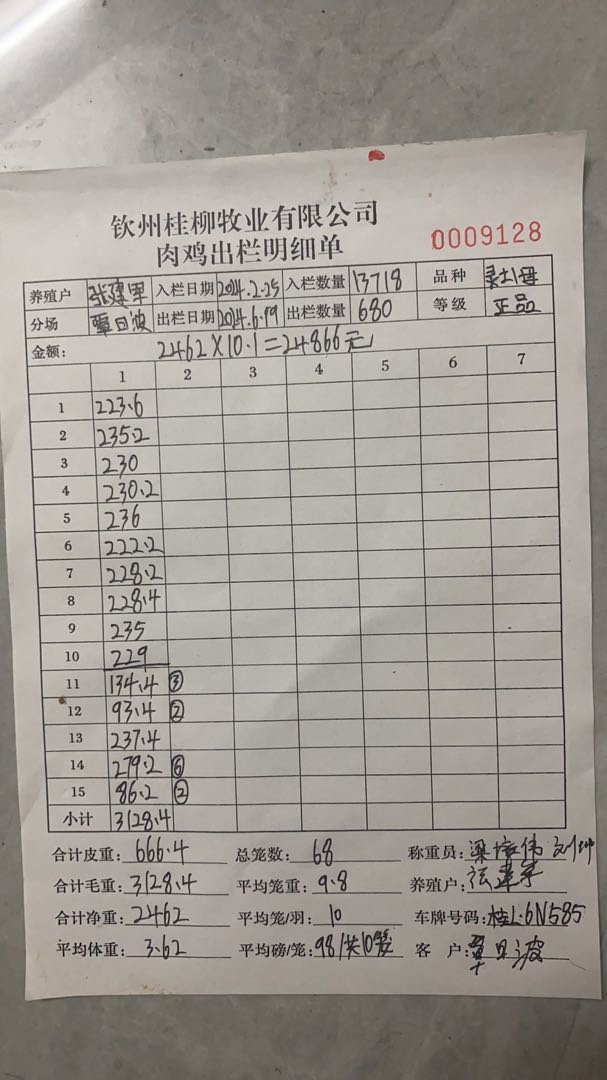 钦州桂柳牧业有限公司
肉鸡出栏明细单
0009128
养殖户 张建军 入栏日期 2024.2.25 入栏数量 13718 品种
分场 覃日波 出栏日期 2024.6.19 出栏数量 680 等级 正品
金额: 2462×10.1=24866元
1 2 3 4 5 6 7
1 223.6
2 235.2
3 230
4 230.2
5 236
6 222.2
7 228.2
8 228.4
9 235
10 229
11 134.4 ③
12 93.4 ②
13 237.4
14 279.2 ⑥
15 86.2 ②
小计 3128.4
合计皮重: 666.4 总笼数: 68 称重员:
合计毛重: 3128.4 平均笼重: 9.8 养殖户: 张建军
合计净重: 2462 平均笼/羽: 10 车牌号码: 桂L·6N585
平均体重: 3.62 平均磅/笼: 98/共10笼 客 户: 覃日波